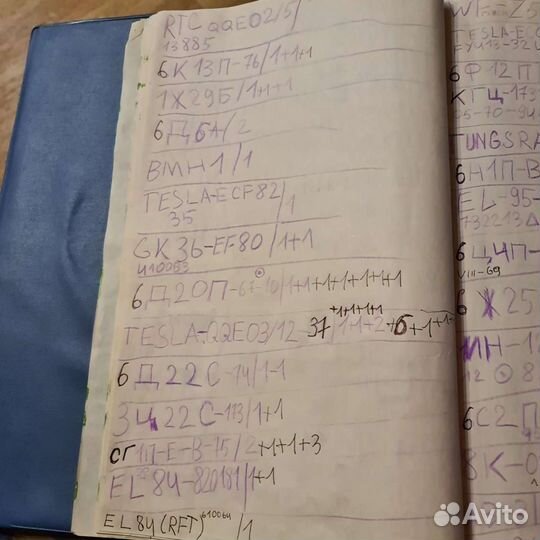 RTC QQE02/5/
13885
6К 13П-76/1+1+1
1Х29Б/1+1+1
6Д6А/2
ВМН1/1
TESLA-ECF82/1
35
GK 36-EF80/1+1
6Д20П-67-10/1+1+1+1+1+1+1
+1+1+1+1
TESLA-QQE03/12 37/1+1+2+6+1+1
6Д22С-74/1-1
3Ц22С-173/1+1
СГ1П-Е-В-75/2+1+1+3
EL 84-820181/1+1
EL84 (RFT) 610064/1
TESLA-EC
6Ф12П
КГЦ-173
05-70-94
TUNGSRA
6Н1П-В
EL-95-
732213
6Ц4П-
VIII-69
6Ж25
6С2П
8К-0
Avito